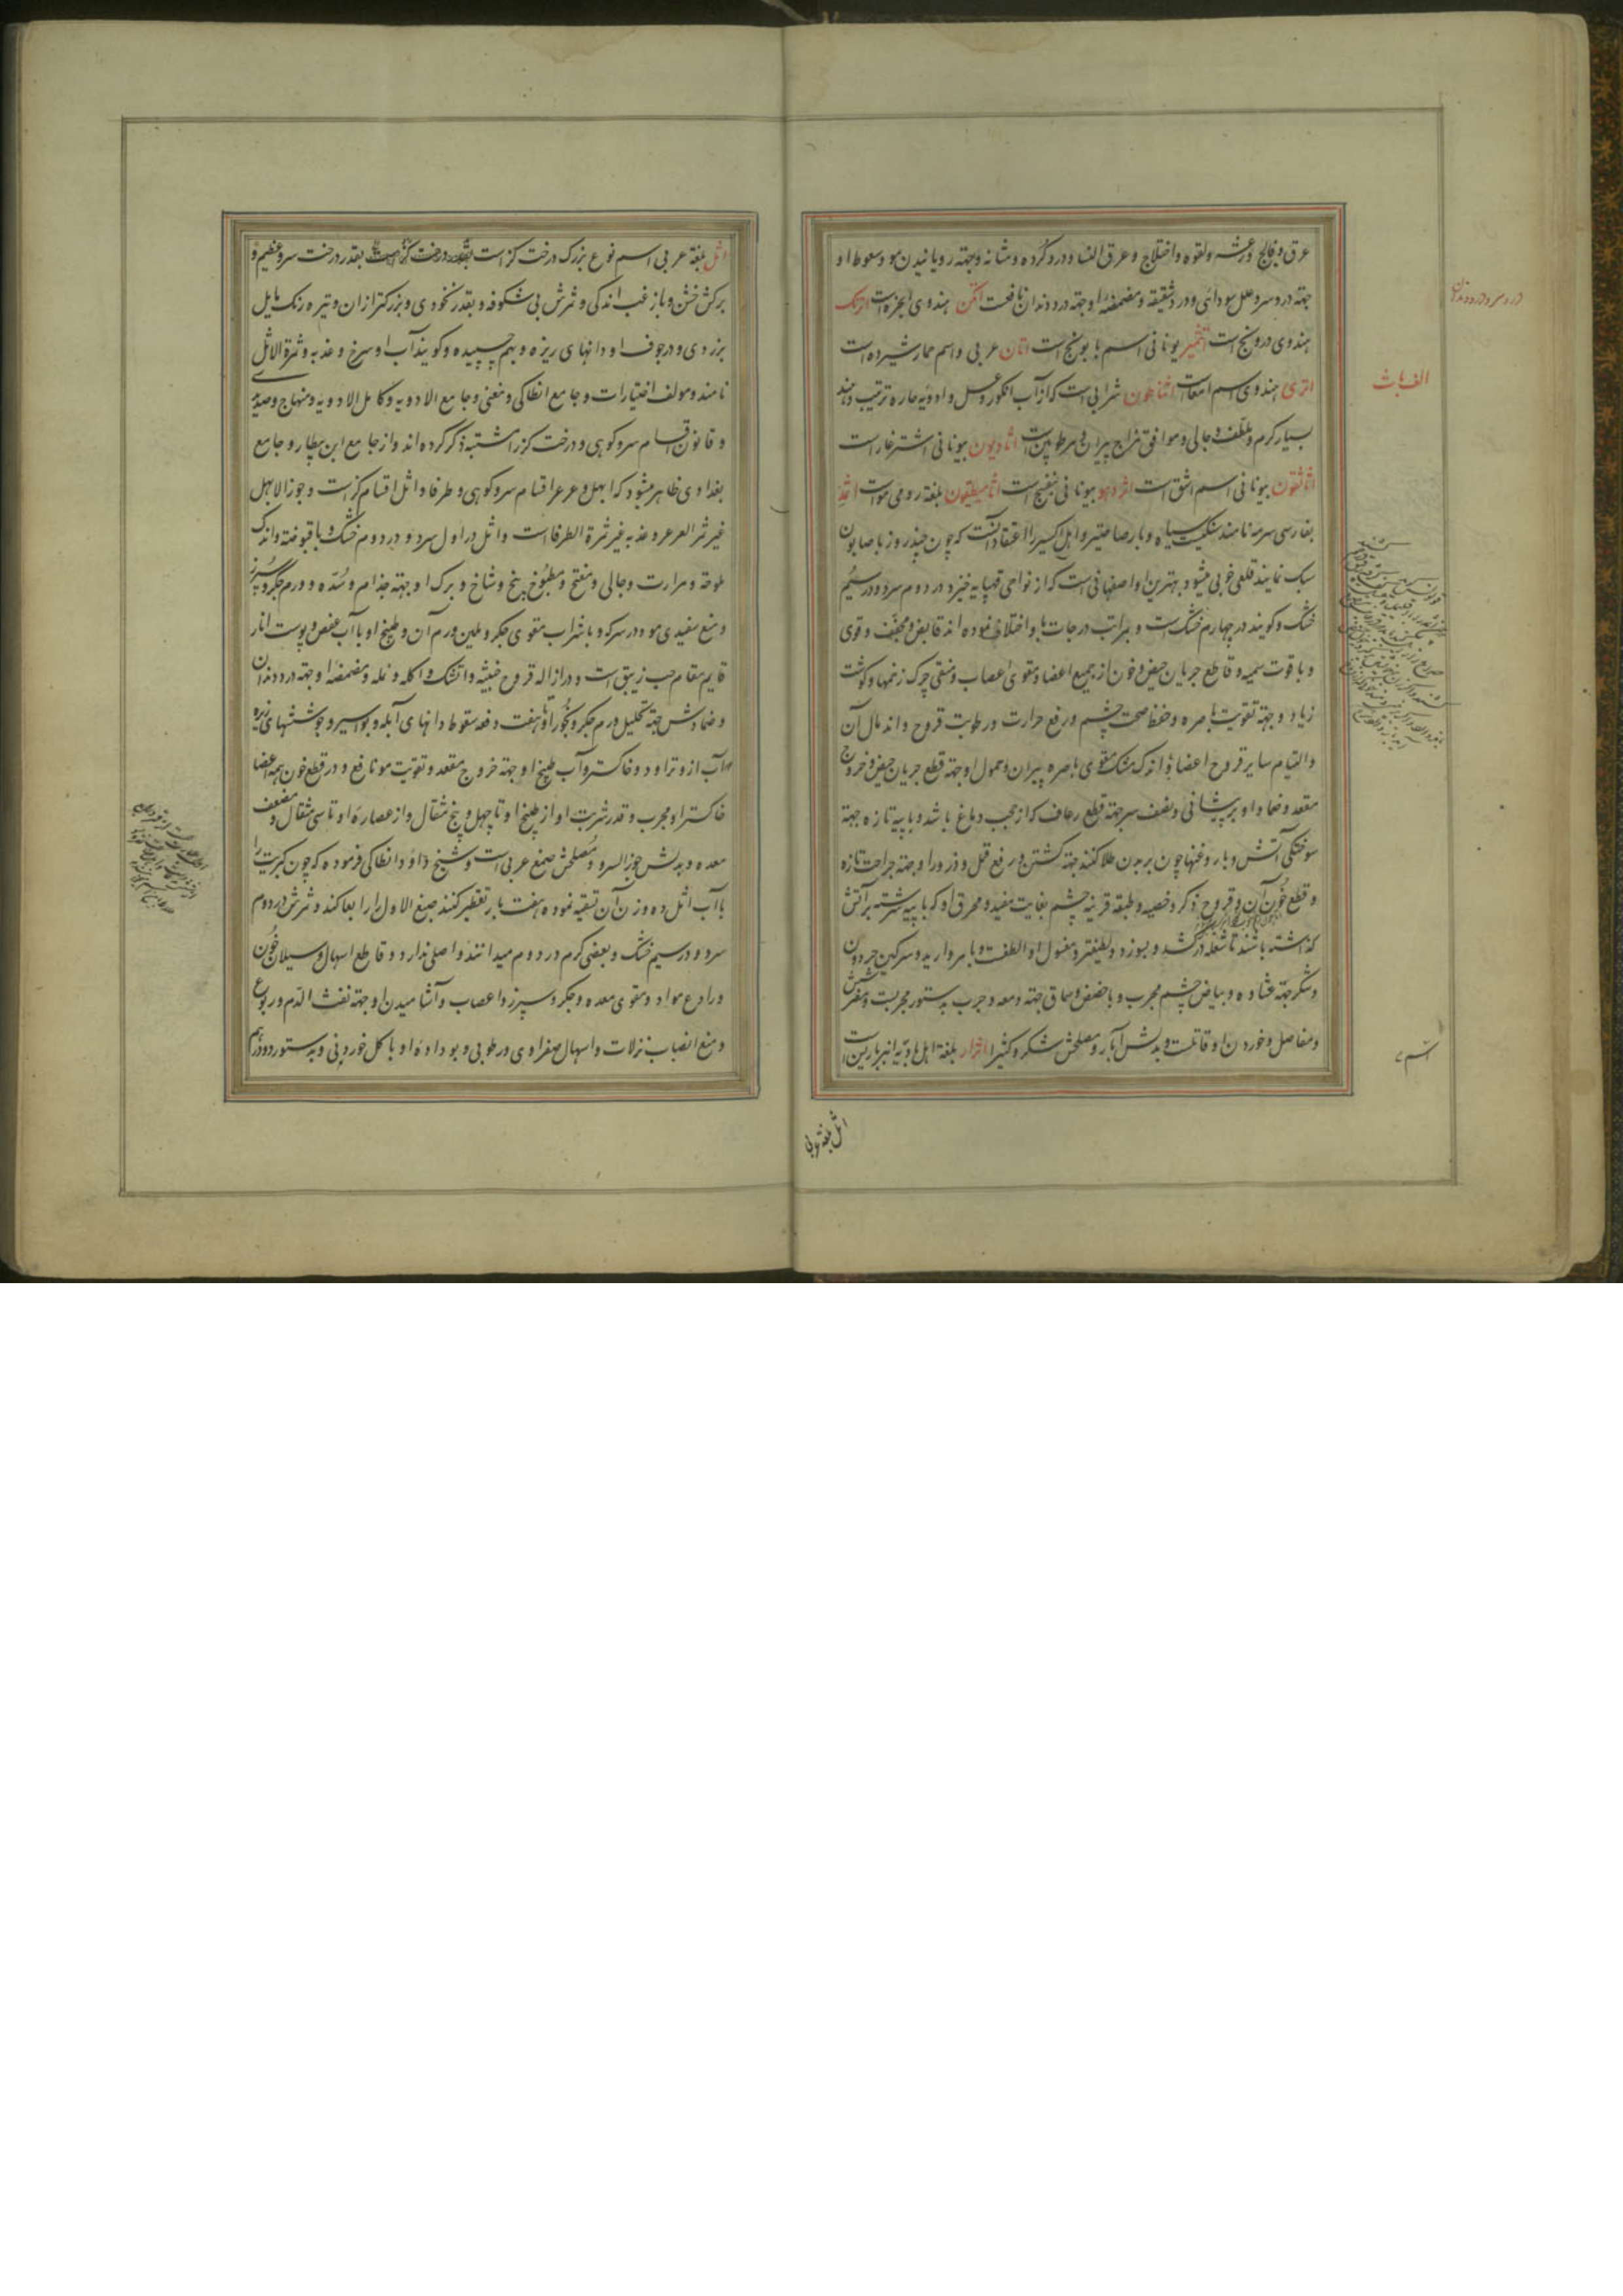 عرق و فالج و رعشه و لقوه و اختلاج و عرق النسا و درد کرده و مثانه و جهته رویانیدن مو و سعوط او
جهته درد سر و علل سودائی و درد شقیقه و مضمضه او جهته درد دندان نافعست اتکن هندوی انجره است اترنک
هندوی درونج است اتنثمیر یونانی اسم بابونج است اتان عربی و اسم حمار شیرده است
اتری هندوی اسم امعاست اثناطون شرابی است که از آب انکور و عسل و ادویه حاره ترتیب دهند
بسیار گرم و ملطف و جالی و موافق مزاج پیران و مرطوبین است اثادیون یونانی اشترغار است
اثاثقون یونانی اسم اشق است اثردیو یونانی بنفسج است اثامیطیقون بلغة رومی مواست اثمد
بفارسی سرمه نامند سنکیست سیاه و با رصاصیته و اهل اکسیر را اعتقاد آنست که چون چند روز با صابون
سبک نمایند قلعی خوبی میشود و بهترین او اصفهانی است که از نواحی قهپایه خیزد در دوم سرد و در سیم
خشک و کویند در چهارم خشک است و بمراتب درجات با و اختلاف نموده اند قابض و مجفف و قوی
و با قوت سمیه و قاطع جریان حیض و خون از جمیع اعضا و مقوی اعصاب و منقی چرک زخمها و کوشت
زیاد و جهته تقویت باصره و حفظ صحت چشم و رفع حرارت و رطوبت قروح و اندمال آن
و التیام سایر قروح اعضا و با اندک مشک مقوی باصره پیران و حمول او جهته قطع جریان حیض و خروج
مقعد و ضماد او بر پیشانی و نصف سر جهته قطع رعاف که از حجب دماغ باشد و با پیه تازه جهته
سوختکی آتش و با روغنها چون بر بدن طلا کنند جهته کشتن و رفع قمل و ذرور او جهته جراحت تازه
و قطع خون آن و قروح ذکر و خصیه و طبقه قرنیه چشم بغایت مفید و محرق او که با پیه سرشته بر آتش
کذاشته باشند تا شعله در کشد و بسوزد و لطیفتر و مغسول او الطفست و با مروارید و سرکین حردون
و شکر جهته غشاوه و بیاض چشم مجرب و با حضض و سماق جهته دمعه و جرب بدستور مجربست و مضرشش
و مفاصل و خوردن او قاتلست و بدلش آبار و مصلحش شکر و کثیرا اثرار بلغة اهل بادیه انبرباریس است
الف باث
اثل بلغة عربی
اثل بلغة عربی اسم نوع بزرک درخت کز است بقدر درخت سرو عظیم و
برکش خشن و با زغب اندکی و ثمرش بی شکوفه و بقدر نخودی و بزرکتر از ان و تیره رنک مایل
بزردی و در جوف او دانهای ریزه و بهم چسپیده و کویند آب او سرخ و عذبه و ثمرة الاثل
نامند و مولف اختیارات و جامع انطاکی و مغنی و جامع الادویه و کامل الادویه و منهاج و
و قانون اقسام سرو کوهی و درخت کز را مشتبه ذکر کرده اند و از جامع ابن بیطار و جامع
بغدادی ظاهر میشود که ابهل و عرعر اقسام سرو کوهی و طرفا و اثل اقسام کز است و جوز الابهل
غیر ثمر العرعر و عذبه غیر ثمرة الطرفاست و اثل در اول سرد و در دوم خشک و با قبوضته و اندک
ملوحة و مرارت و جالی و مفتح و مطبوخ بیخ و شاخ و برک او جهته جذام و سده و ورم جکر و سپرز
و منع سفیدی مو و در سرکه و با شراب مقوی جکر و ملین ورم آن و طبیخ او با آب عفص و پوست انار
قایم مقام حب زیبق است و در ازاله قروح خبیثه و اتشک و اکله و نمله و مضمضه او جهته درد دندان
و ضمادش جهته تحلیل ورم جکر و بخور او تا هفت دفعه مسقوط دانهای آبله و بواسیر و جوششهای
آب از و تراود و خاکستر و آب طبیخ او جهته خروج مقعد و تقویت مو نافع و در قطع خون همه اعضا
خاکستر او مجرب و قدر شربت او از طبیخ او تا چهل و پنج مثقال و از عصاره او تا سی مثقال و مضعف
معده و بدلش جوز السرو و مصلحش صمغ عربی است و شیخ داؤد انطاکی فرموده که چون کبریت را
با آب اثل ده وزن آن تسقیه نموده هفت بار تقطیر کنند صبغ الاول را رابعا کند و ثمرش در دوم
سرد و در سیم خشک و بعضی کرم در دوم میدانند و اصلی ندارد و قاطع اسهال و سیلان خون
و رادع مواد و مقوی معده و جکر و سپرز و اعصاب و آشامیدن او جهته نفث الدم و ربو
و منع انصباب نزلات و اسهال صفراوی و رطوبی و بو داده او با کل خوردنی و بدستور دو درهم